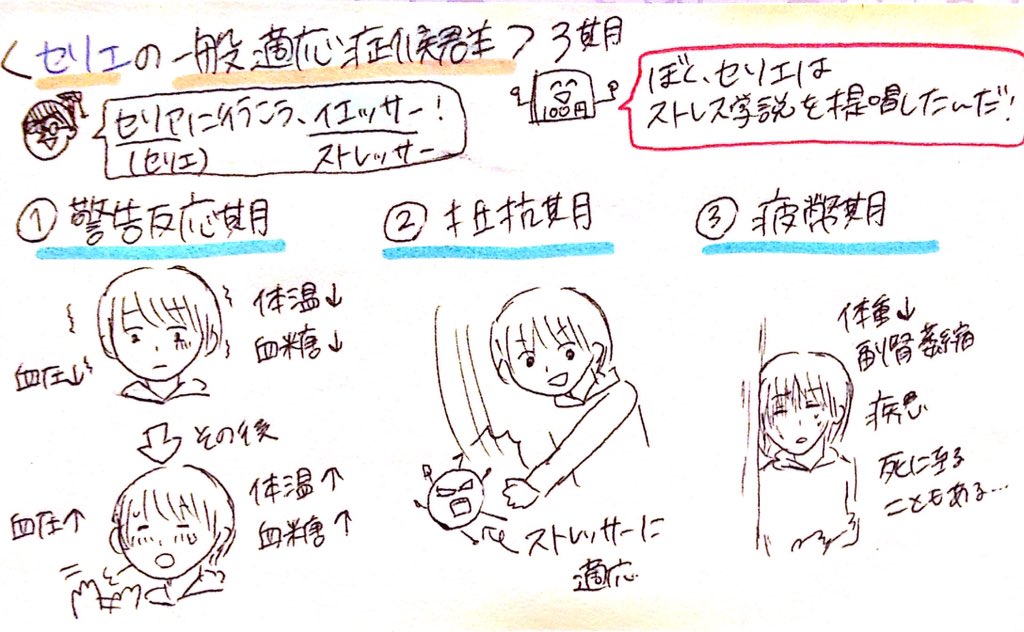 <セリエの一般適応症候群> 3期
セリアに行こう、イエッサー!
(セリエ) ストレッサー
100円
ぼく、セリエは
ストレス学説を提唱したんだ!
① 警告反応期
体温↓
血糖↓
血圧↓
その後
血圧↑
体温↑
血糖↑
② 抵抗期
ストレッサーに
適応
③ 疲弊期
体重↓
副腎萎縮
病気
死に至る
こともある…